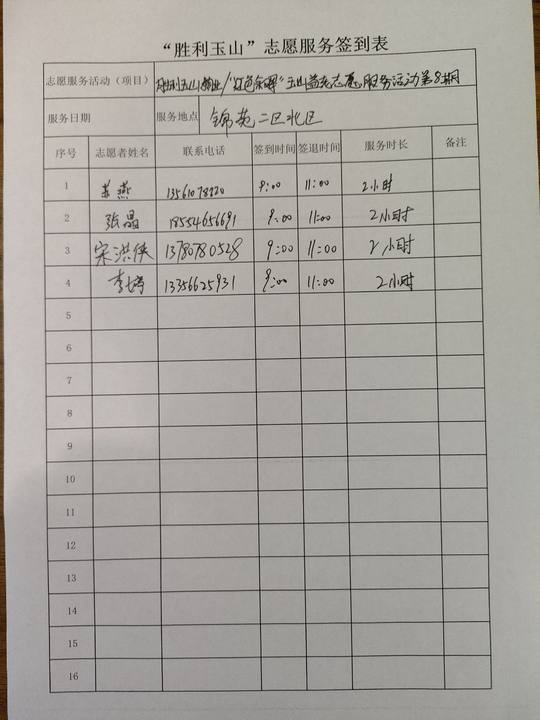 “胜利玉山”志愿服务签到表
志愿服务活动（项目） 胜利玉山 /“红色 ”玉山益老志愿服务活动第8期
服务日期 服务地点 锦苑二区北区
序号 志愿者姓名 联系电话 签到时间 签退时间 服务时长 备注
1 姜燕 9:00 11:00 2小时
2 张晶 18554656691 9:00 11:00 2小时
3 宋洪侠 13780780528 9:00 11:00 2小时
4 李婷 13356625931 9:00 11:00 2小时
5
6
7
8
9
10
11
12
13
14
15
16